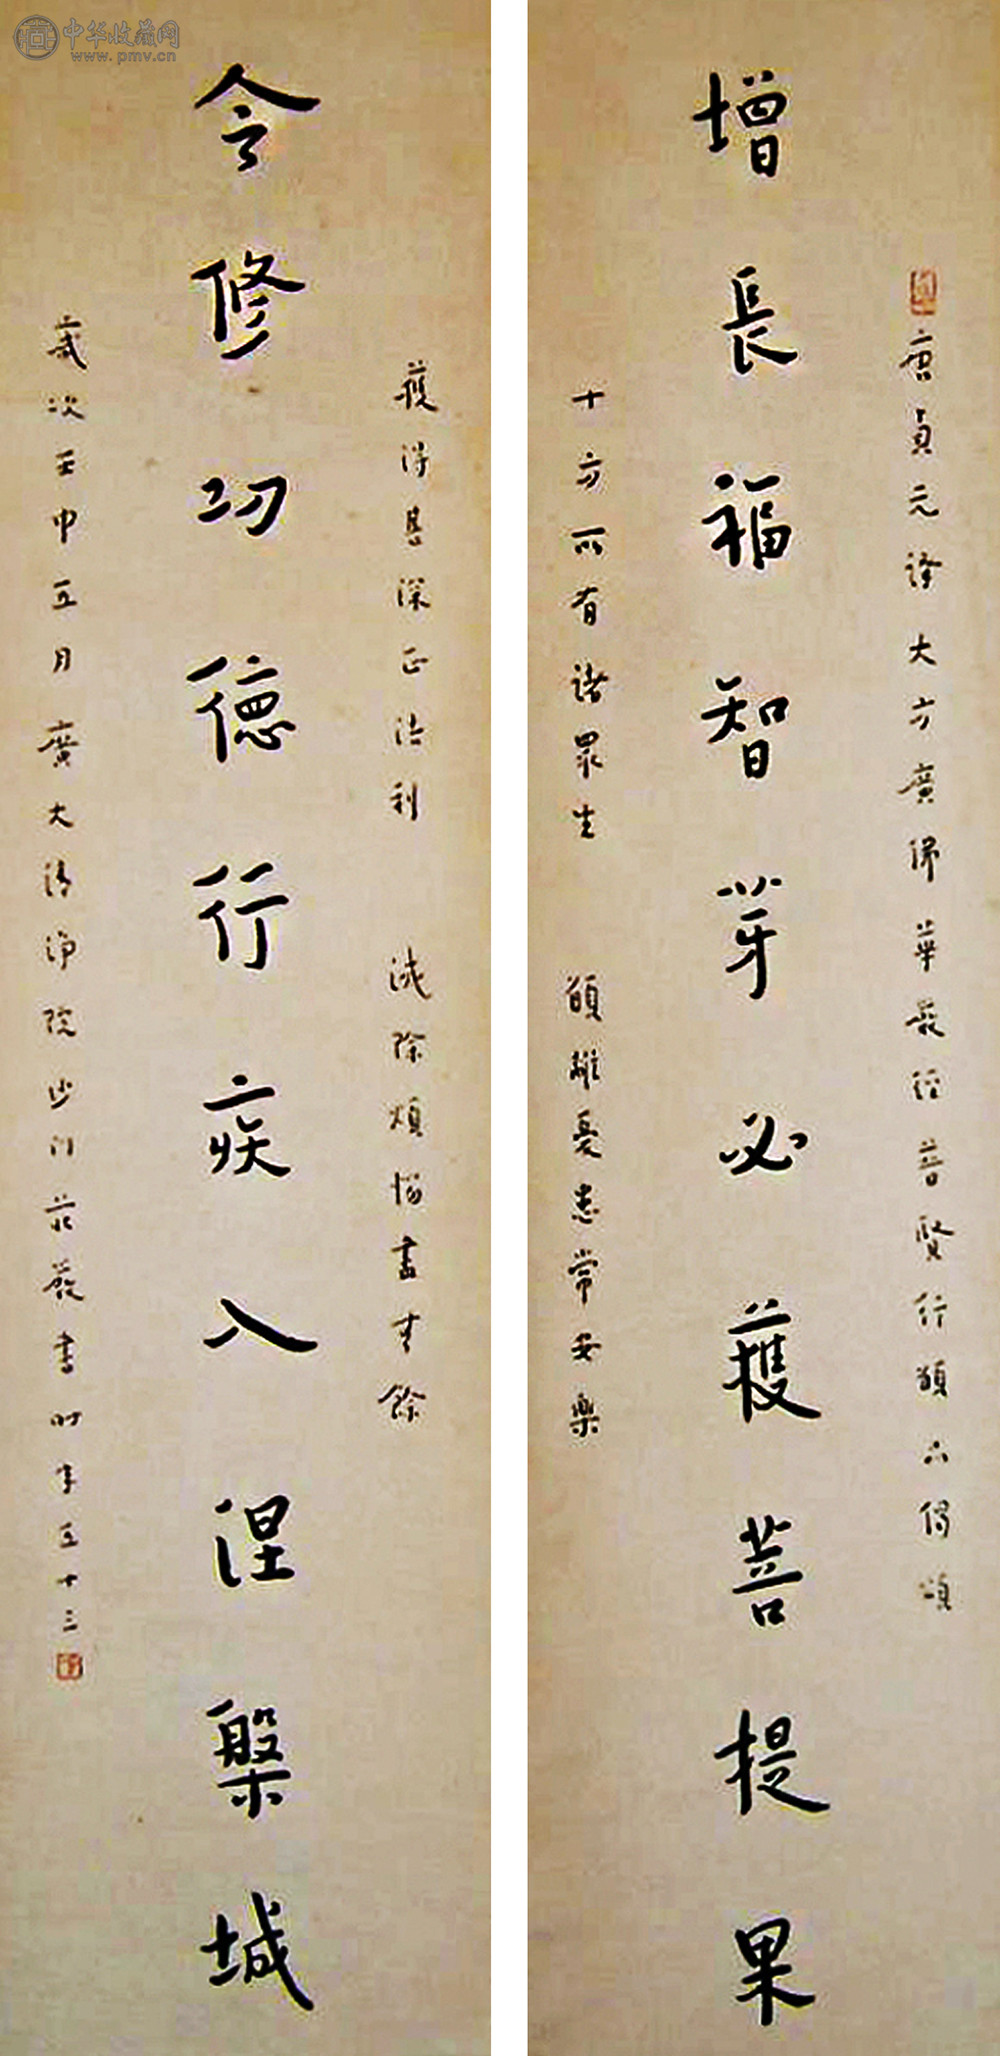 中华收藏网
www.pmv.cn
唐貞元譯大方廣佛華嚴經普賢行願六偈頌
增長福智芽必獲菩提果
十方所有諸眾生 願離憂患常安樂
獲得甚深正法利 滅除煩惱盡無餘
令修功德行疾入涅槃城
歲次壬申五月廣大清淨院沙門莊嚴書時年五十三